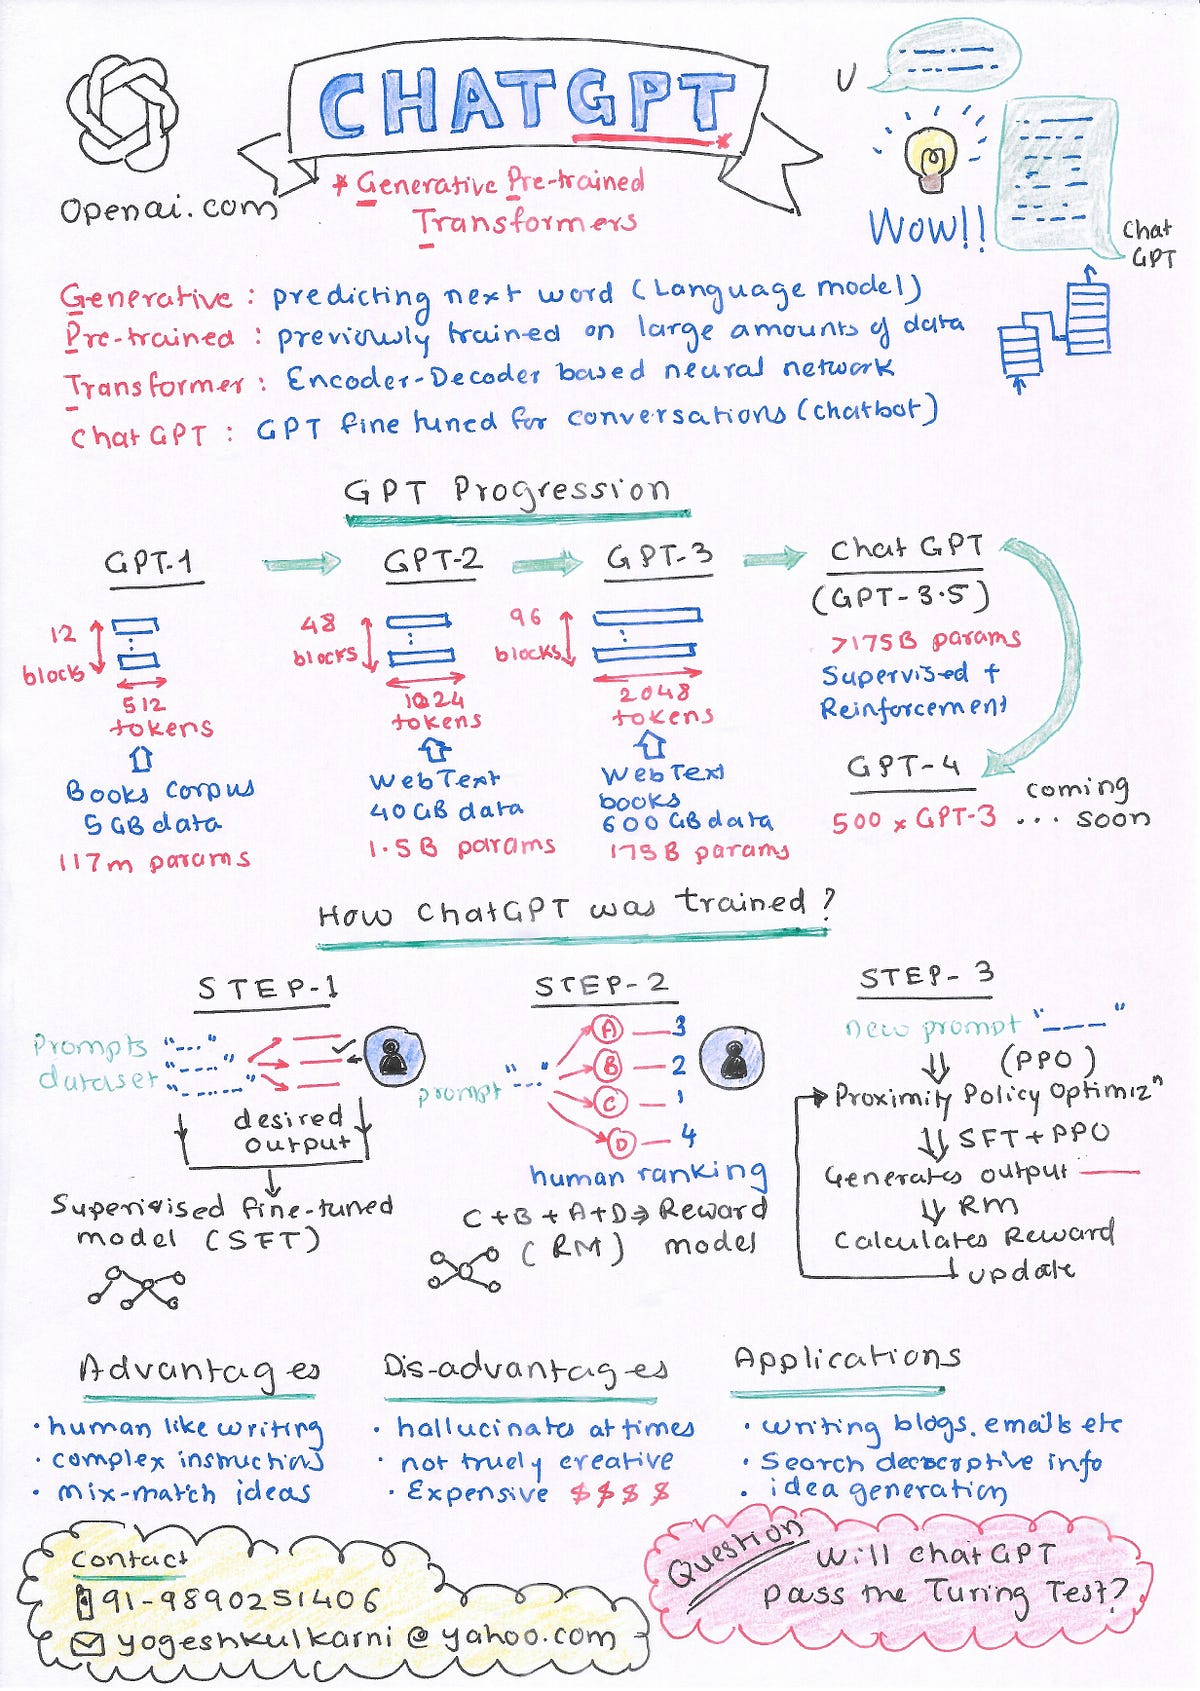 CHATGPT*
* Generative Pre-trained
Transformers
Openai.com
U
Wow!!
Chat
GPT
Generative : predicting next word (Language model)
Pre-trained : previously trained on large amounts of data
Transformer : Encoder-Decoder based neural network
Chat GPT : GPT fine tuned for conversations (chatbot)
GPT Progression
GPT-1
12
blocks
512
tokens
Books Corpus
5 GB data
117m params
GPT-2
48
blocks
1024
tokens
WebText
40 GB data
1.5B params
GPT-3
96
blocks
2048
tokens
WebText
books
600 GB data
175B params
Chat GPT
(GPT-3.5)
>175B params
Supervised +
Reinforcement
GPT-4
500 x GPT-3 ... coming soon
How ChatGPT was trained?
STEP-1
Prompts
dataset
desired
output
Supervised fine-tuned
model (SFT)
STEP-2
prompt
A 3
B 2
C 1
D 4
human ranking
C+B+A+D⇒ Reward
(RM) model
STEP-3
new prompt "___"
(PPO)
Proximity Policy Optimizⁿ
SFT+PPO
Generates output
RM
Calculates Reward
update
Advantages
• human like writing
• complex instructions
• mix-match ideas
Dis-advantages
• hallucinates at times
• not truely creative
• Expensive $$$$
Applications
• writing blogs, emails etc
• Search info
• idea generation
Contact
91-9890251406
yogeshkulkarni@yahoo.com
Question
Will chatGPT
pass the Turing Test?